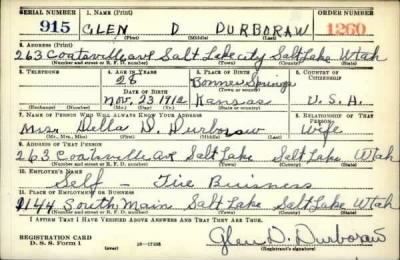 SERIAL NUMBER 1. NAME (Print) ORDER NUMBER
915 GLEN D DURBORAW 1260
(First) (Middle) (Last)
2. ADDRESS (Print)
263 Coatsville Ave Salt Lake City Salt Lake Utah
(Number and street or R. F. D. number) (Town) (County) (State)
3. TELEPHONE 4. AGE IN YEARS 5. PLACE OF BIRTH 6. COUNTRY OF CITIZENSHIP
28 Bonner Springs
DATE OF BIRTH (Town or county)
Nov. 23 1912 Kansas U.S.A.
(Exchange) (Number) (Mo.) (Day) (Yr.) (State or country)
7. NAME OF PERSON WHO WILL ALWAYS KNOW YOUR ADDRESS 8. RELATIONSHIP OF THAT PERSON
Mrs. Della D. Durboraw Wife
(Mr., Mrs., Miss) (First) (Middle) (Last)
9. ADDRESS OF THAT PERSON
263 Coatsville Ave Salt Lake Salt Lake Utah
(Number and street or R. F. D. number) (Town) (County) (State)
10. EMPLOYER'S NAME
Self Tire Buisness
11. PLACE OF EMPLOYMENT OR BUSINESS
1144 South Main Salt Lake Salt Lake Utah
(Number and street or R. F. D. number) (Town) (County) (State)
I AFFIRM THAT I HAVE VERIFIED ABOVE ANSWERS AND THAT THEY ARE TRUE.
REGISTRATION CARD
D. S. S. FORM 1 16-17105 Glen D. Durboraw
(Registrant's signature)